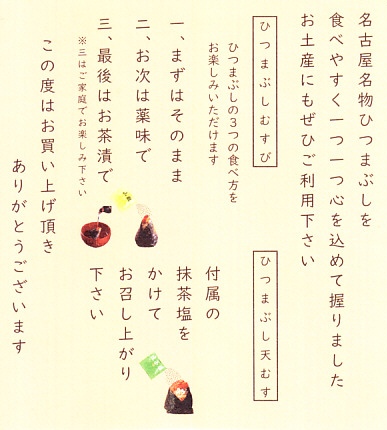 名古屋名物ひつまぶしを
食べやすく一つ一つ心を込めて握りました
お土産にもぜひご利用下さい
ひつまぶしむすび
ひつまぶしの３つの食べ方を
お楽しみいただけます
一、まずはそのまま
二、お次は薬味で
三、最後はお茶漬で
※三はご家庭でお楽しみ下さい
ひつまぶし天むす
付属の
抹茶塩を
かけて
お召し上がり
下さい
この度はお買い上げ頂き
ありがとうございます